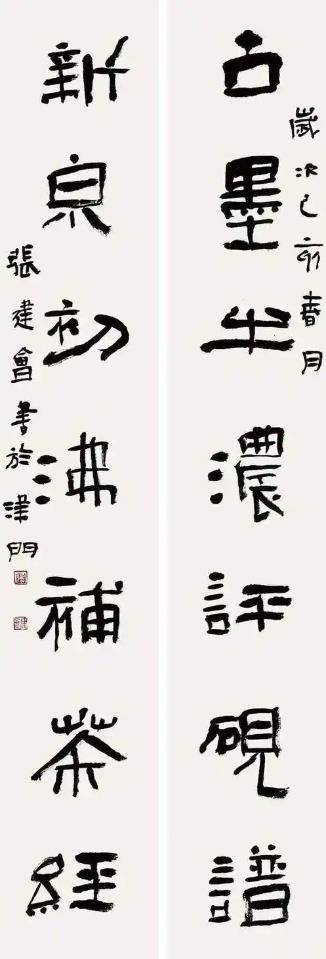 歲次己亥春月
古墨濃評硯譜
新泉初沸補茶經
張建會書於津門